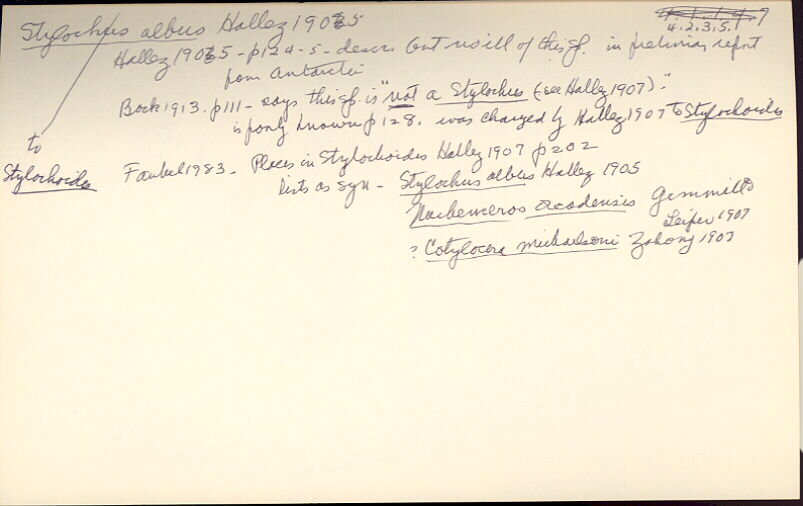 Stylochus albus Hallez 1905
4.1.1.4.9
4.2.3.5.1
Hallez 1905 - p124-5 - descr. but no ill of this sf. in preliminary report
from Antarctic
Bock 1913. p111 - says this sf. is "not a Stylochus (see Hallez 1907)."
is poorly known p128. was changed by Hallez 1907 to Stylochoides
to
Stylochoides
Faubel 1983 - Places in Stylochoides Hallez 1907 p202
Lists as syn - Stylochus albus Hallez 1905
Gemmill &
Leiper 1907
? Cotylocera michaelseni 1907